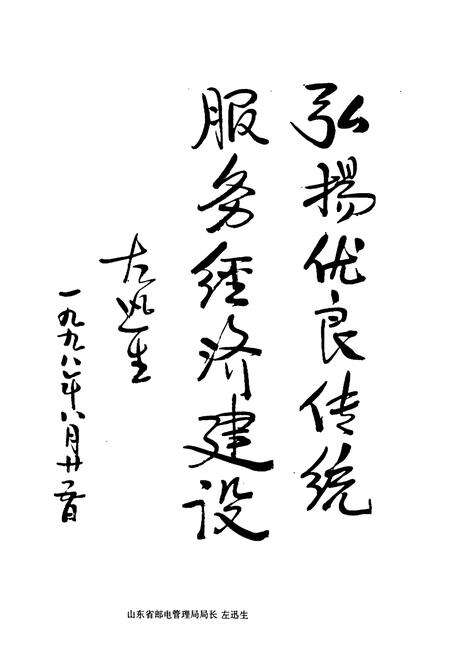 弘揚优良传统
服务經济建设
左迅生
一九九八年八月廿二日
山东省邮电管理局局长 左迅生